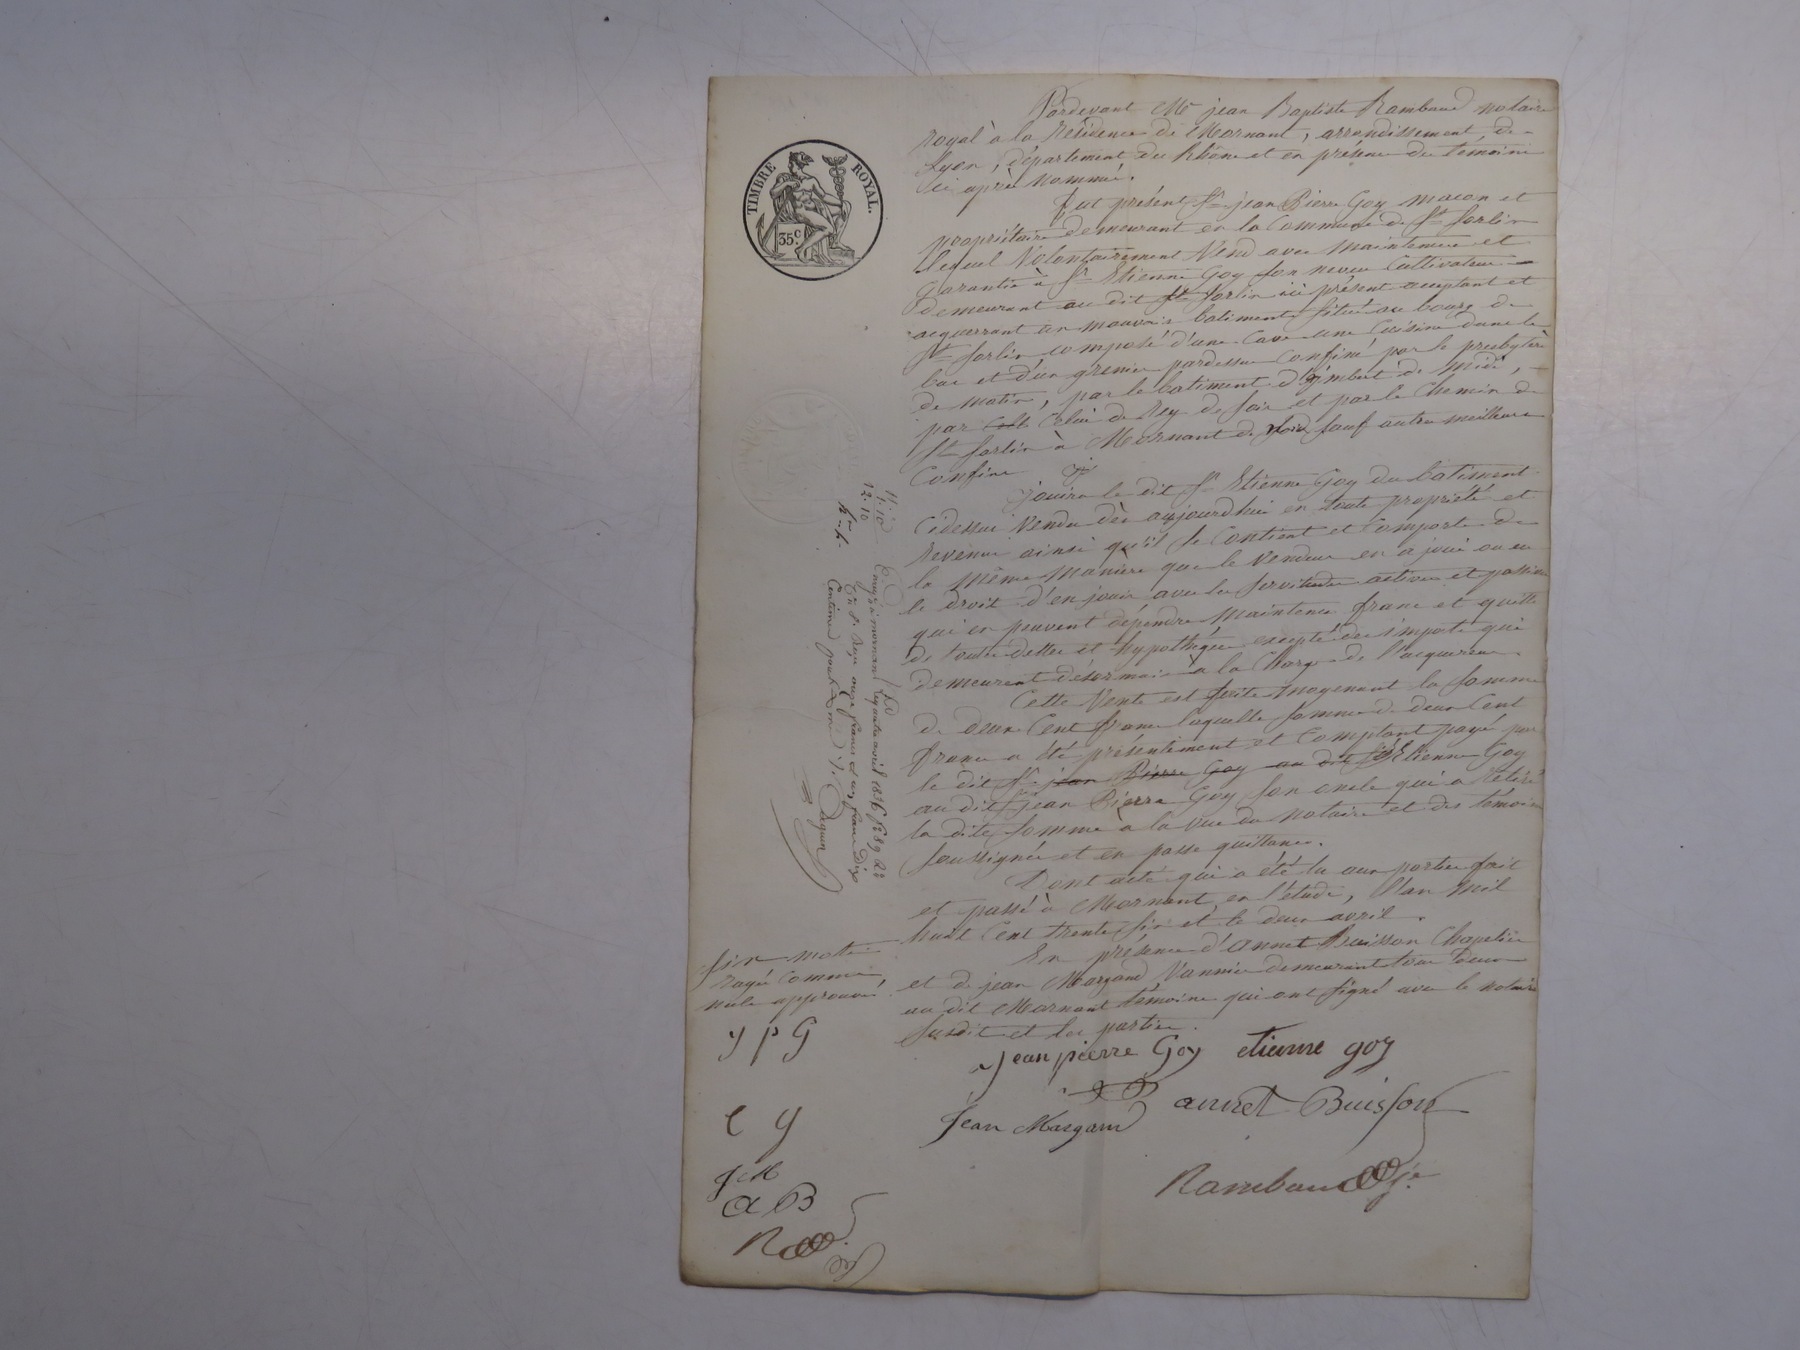 TIMBRE ROYAL.
35.c
Pardevant Me jean Baptiste Rambaud notaire
royal à la résidence de Mornant, arrondissement, de
Lyon, département du Rhône et en présence des témoins
ci après nommés.
fut présent Sr jean Pierre Goy macon et
propriétaire demeurant en la Commune de St Sorlin
lequel Volontairement Vend avec maintenue et
garantie à Sr Etienne Goy son neveu Cultivateur
demeurant au dit St Sorlin ici présent acceptant et
acquerrant un mauvais batiments situé au bourg de
St Sorlin composé d'une Cave une Cuisine dans le
bas et d'un grenier pardessus Confiné par le presbytère
de matin, par le batiment d'ymbert de midi,
par Celui de Rey de soir et par le Chemin de
St Sorlin à Mornant de sauf autre meilleurs
Confins
jouira le dit Sr Etienne Goy du batiment
Cidessus Vendu dès aujourdhui en toute propriété et
Revenu ainsi qu'il se Contient et Comporte de
la même manière que le Vendeur en a joui ou eu
le droit d'en jouir avec les servitudes actives et passives
qui en peuvent dépendre maintenu franc et quitte
de toutes dettes et hypothéques excepté des impots qui
demeurent désormais à la Charge de l'acquereur.
Cette Vente est faite moyenant la somme
de deux Cent francs laquelle somme de deux Cent
francs a été présentement et Comptant payé par
le dit Sr jean Pierre Goy au dit Sr Etienne Goy
au dit jean Pierre Goy son oncle qui a retiré
la dite somme à la vue du notaire et des témoins
soussignés et en passe quittance.
Dont acte qui a été lu aux parties fait
et passé à Mornant en l'étude, l'an mil
huit Cent trente six et le deux avril.
En présence d'annet Buisson Chapelier
et de jean Margand Vannier demeurant tous deux
au dit Mornant témoins qui ont signé avec le notaire
susdit et les parties.
jean pierre Goy etienne goy
Jean Margand annet Buisson
Rambaud
11. 10
12. 10
Enregé à mornant le quatre avril 1836 fo 89
reçu onze francs et un franc dix
Centimes pour
six mots
rayés comme
nuls approuvés
J P G
E G
J M
a B
R